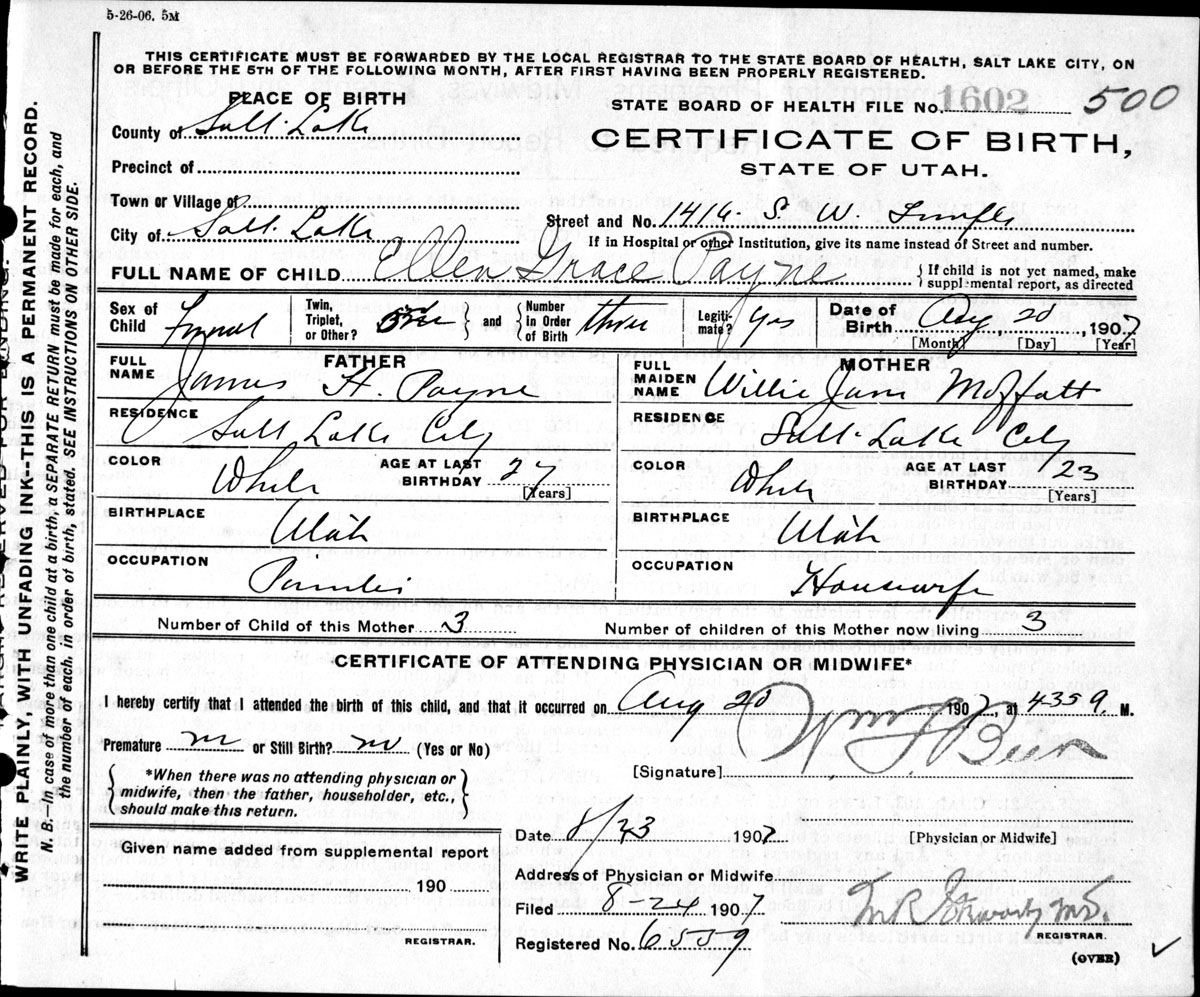 5-26-06. 5M
THIS CERTIFICATE MUST BE FORWARDED BY THE LOCAL REGISTRAR TO THE STATE BOARD OF HEALTH, SALT LAKE CITY, ON
OR BEFORE THE 5TH OF THE FOLLOWING MONTH, AFTER FIRST HAVING BEEN PROPERLY REGISTERED.
PLACE OF BIRTH
STATE BOARD OF HEALTH FILE No. 1602 500
County of Salt Lake
CERTIFICATE OF BIRTH,
Precinct of
STATE OF UTAH.
Town or Village of
Street and No. 1416 S. W. Temple
City of Salt Lake
If in Hospital or other Institution, give its name instead of Street and number.
FULL NAME OF CHILD Ellen Grace Payne
{ If child is not yet named, make
supplemental report, as directed
Sex of Child Femal
Twin, Triplet, or Other? } and { Number in Order of Birth three
Legiti-mate? Yes
Date of Birth Aug 20, 1907
[Month] [Day] [Year]
FATHER
FULL NAME James H. Payne
RESIDENCE Salt Lake City
COLOR White
AGE AT LAST BIRTHDAY 27 [Years]
BIRTHPLACE Utah
OCCUPATION
MOTHER
FULL MAIDEN NAME Willie Jane Moffatt
RESIDENCE Salt Lake City
COLOR White
AGE AT LAST BIRTHDAY 23 [Years]
BIRTHPLACE Utah
OCCUPATION Housewife
Number of Child of this Mother 3
Number of children of this Mother now living 3
CERTIFICATE OF ATTENDING PHYSICIAN OR MIDWIFE*
I hereby certify that I attended the birth of this child, and that it occurred on Aug 20 1907, at M.
Premature no or Still Birth? no (Yes or No)
[Signature] Wm F. Beer
*When there was no attending physician or
midwife, then the father, householder, etc.,
should make this return.
Date 8/23 1907
[Physician or Midwife]
Given name added from supplemental report
190
REGISTRAR.
Address of Physician or Midwife
Filed 8-24 1907
Registered No. 6559
REGISTRAR.
(OVER)
WRITE PLAINLY, WITH UNFADING INK--THIS IS A PERMANENT RECORD.
N. B.—In case of more than one child at a birth, a SEPARATE RETURN must be made for each, and
the number of each, in order of birth, stated. SEE INSTRUCTIONS ON OTHER SIDE.